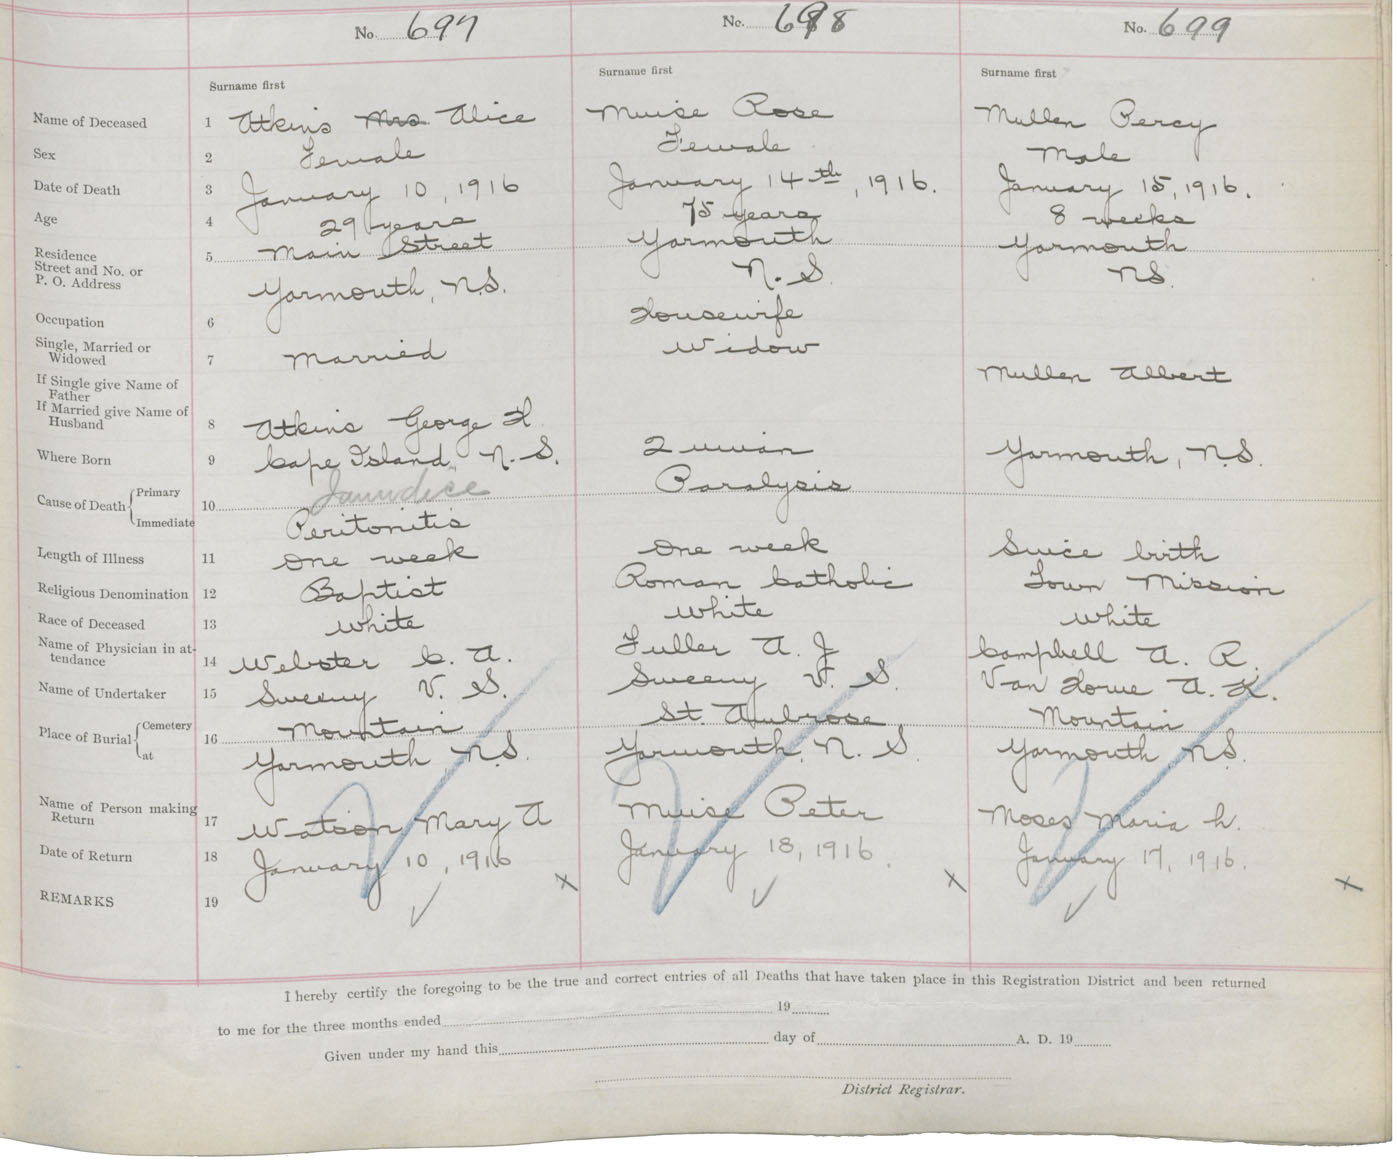 No. 697 No. 698 No. 699
Surname first Surname first Surname first
Name of Deceased 1 Atkins Mrs Alice Muise Rose Mullen Percy
Sex 2 Female Female Male
Date of Death 3 January 10, 1916 January 14th, 1916. January 15, 1916.
Age 4 29 years 75 years 8 weeks
Residence 5 Main Street Yarmouth Yarmouth
Street and No. or
P. O. Address Yarmouth, N.S. N. S. NS.
Occupation 6 Housewife
Single, Married or
Widowed 7 Married Widow
If Single give Name of
Father Mullen Albert
If Married give Name of
Husband 8 Atkins George H.
Where Born 9 Cape Island, N. S. Yarmouth, N.S.
Cause of Death Primary 10 Jaundice Paralysis
Immediate Peritonitis
Length of Illness 11 One week One week Since birth
Religious Denomination 12 Baptist Roman Catholic Town Mission
Race of Deceased 13 White White White
Name of Physician in at-
tendance 14 Webster C. A. Fuller A. J. Campbell A. R.
Name of Undertaker 15 Sweeny V. S. Sweeny V. S. Van Horne A. K.
Place of Burial Cemetery 16 Mountain St. Ambrose Mountain
at Yarmouth N.S. Yarmouth, N. S. Yarmouth, N.S.
Name of Person making
Return 17 Watson Mary A Muise Peter Moses Maria h.
Date of Return 18 January 10, 1916 January 18, 1916. January 17, 1916.
REMARKS 19
I hereby certify the foregoing to be the true and correct entries of all Deaths that have taken place in this Registration District and been returned
to me for the three months ended 19
Given under my hand this day of A. D. 19
District Registrar.